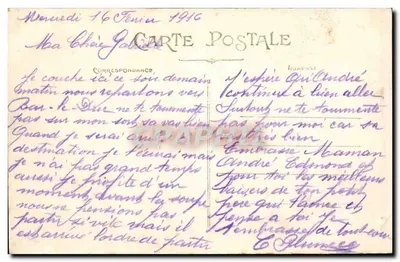 Mercredi 16 Fevrier 1916
Ma Chère Gabrielle
CARTE POSTALE
CORRESPONDANCE
Je couche ici ce soir demain
matin nous repartons vers
Bar-le-Duc ne te tourmente
pas sur mon sort sa vas bien
Quand je serai
destination je t'ecrirai mais
je n'ai pas grand temps
aussi je profite d'un
moment avant la soupe
nous ne pensions pas
partir si vite mais il
est arriver l'ordre de partir
J'espère qu'André
continue à bien aller
Surtout ne te tourmente
pas pour moi car sa
va très bien
Embrasse Maman
André Edmond et
pour toi les meilleurs
baisers de ton petit
père qui t'aime et
pense a toi Je
t'embrasse de tout cœur